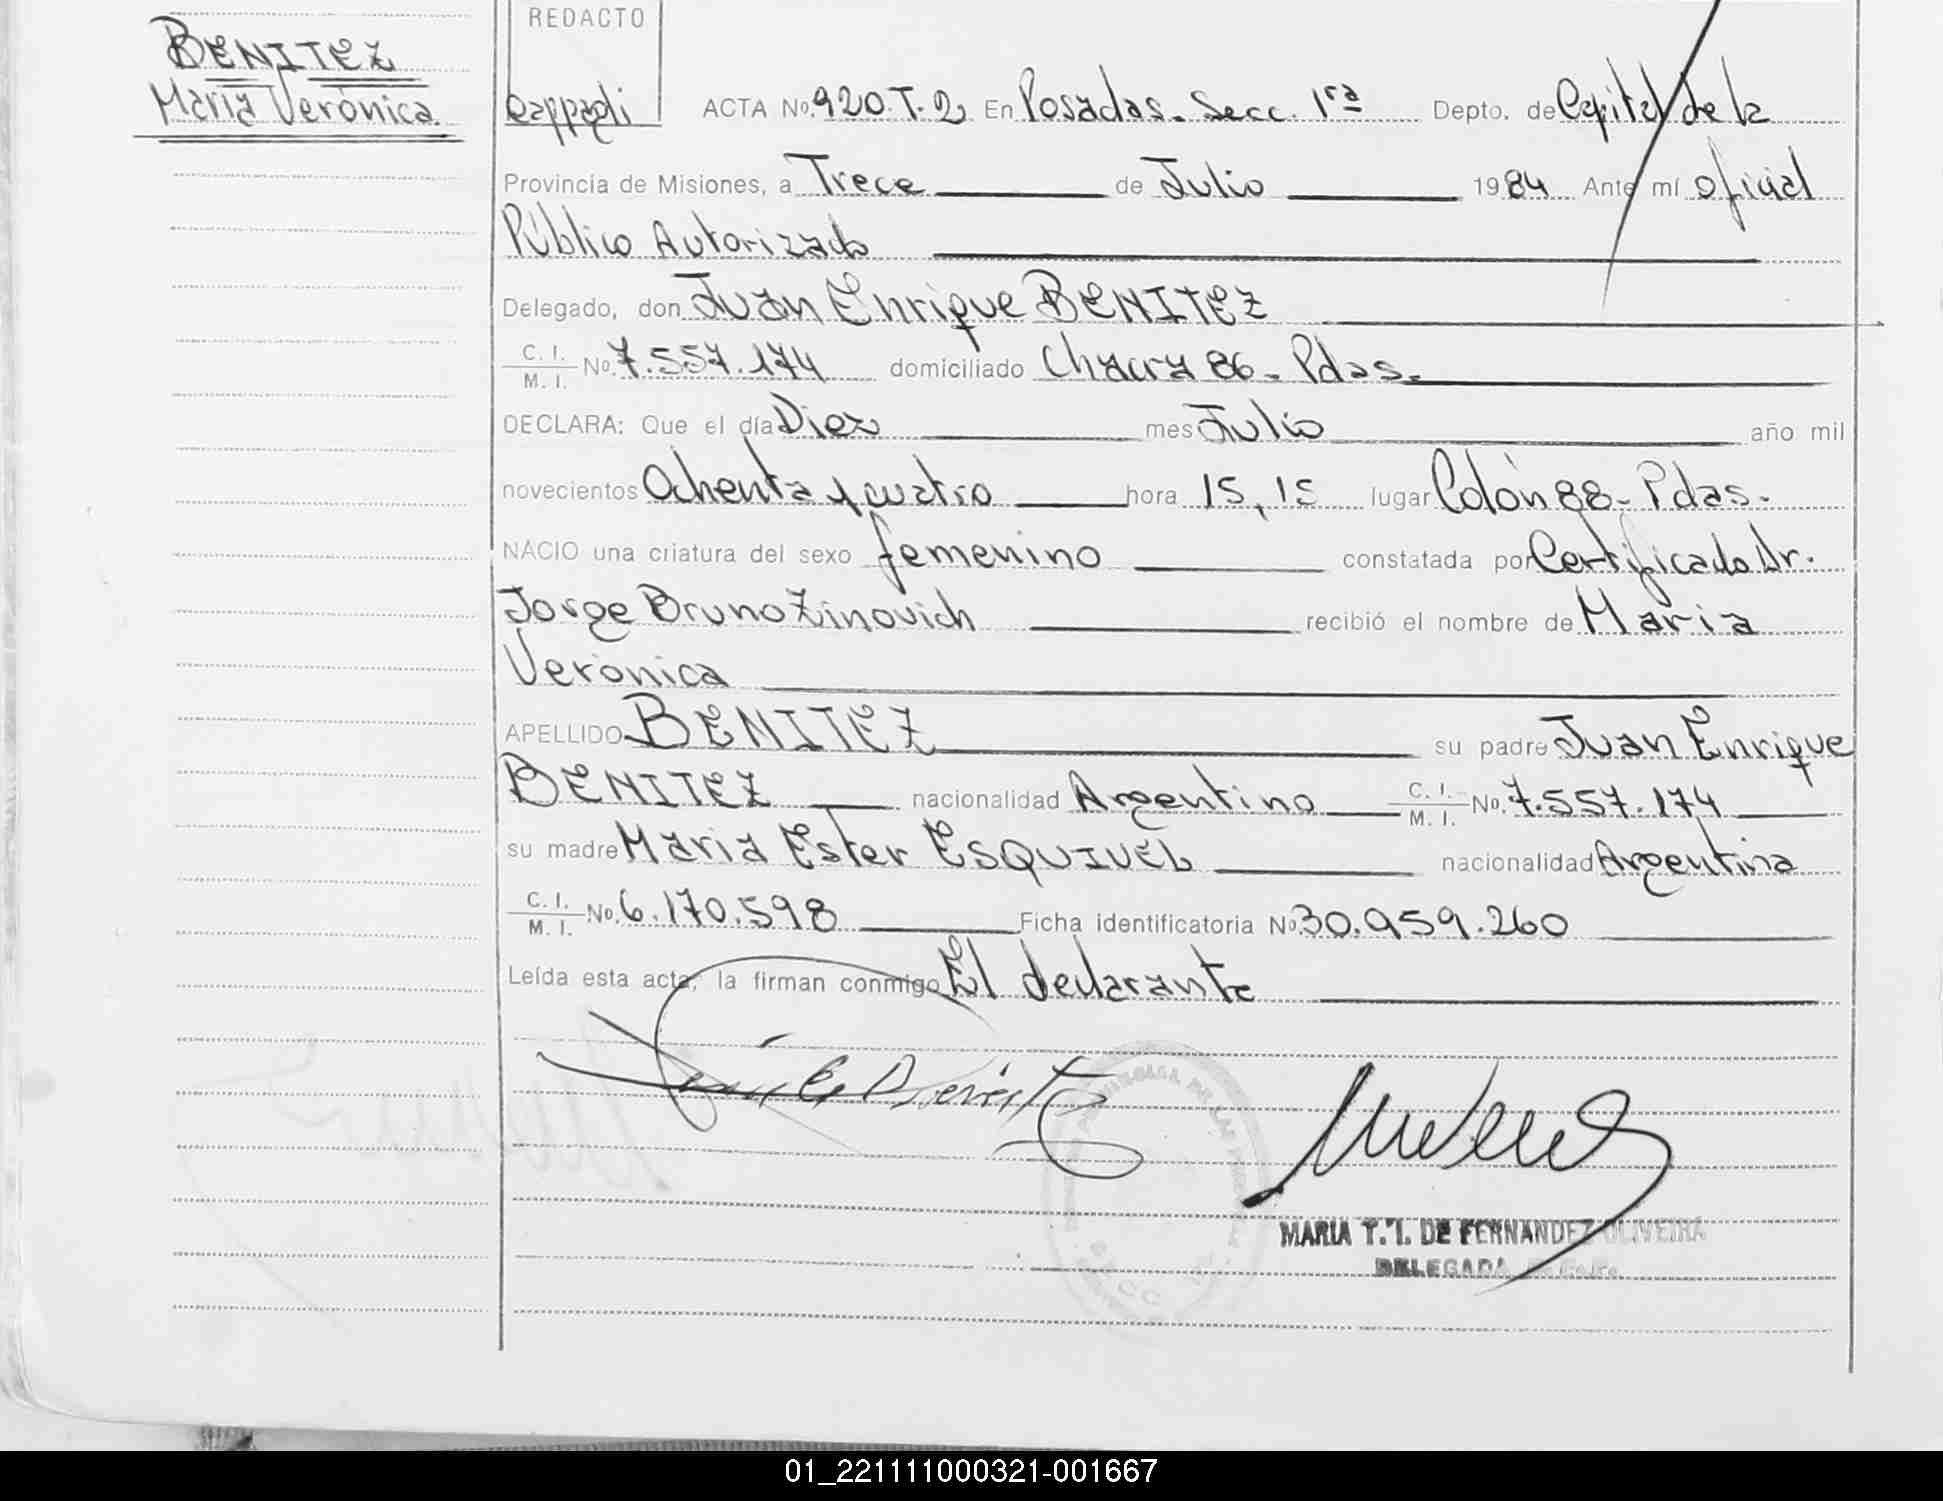 BENITEZ
María Verónica.
REDACTO
ACTA Nº 920.T.2 En Posadas. Secc. 1ra Depto. de Capital de la
Provincia de Misiones, a Trece de Julio 1984 Ante mí oficial
Público Autorizado
Delegado, don Juan Enrique BENITEZ
C. I.
M. I. Nº 7.557.174 domiciliado Chacra 86 - Pdas.
DECLARA: Que el día Diez mes Julio año mil
novecientos Ochenta y cuatro hora 15,15 lugar Colón 88 - Pdas.
NACIO una criatura del sexo femenino constatada por Certificado Dr.
Jorge Bruno Zinovich recibió el nombre de María
Verónica
APELLIDO BENITEZ su padre Juan Enrique
BENITEZ nacionalidad Argentino C. I. M. I. Nº 7.557.174
su madre María Ester ESQUIVEL nacionalidad Argentina
C. I. M. I. Nº 6.170.598 Ficha identificatoria Nº 30.959.260
Leída esta acta, la firman conmigo El declarante
MARIA T. I. DE FERNANDEZ OLIVEIRA
DELEGADA
01_221111000321-001667